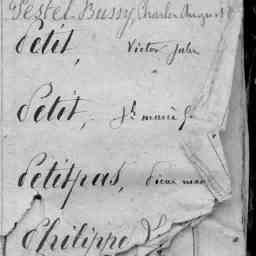 Pestel-Bussy, Charles August
Petit, Victor Jules
Petit, Jh marie
Petitpas,
Philippe